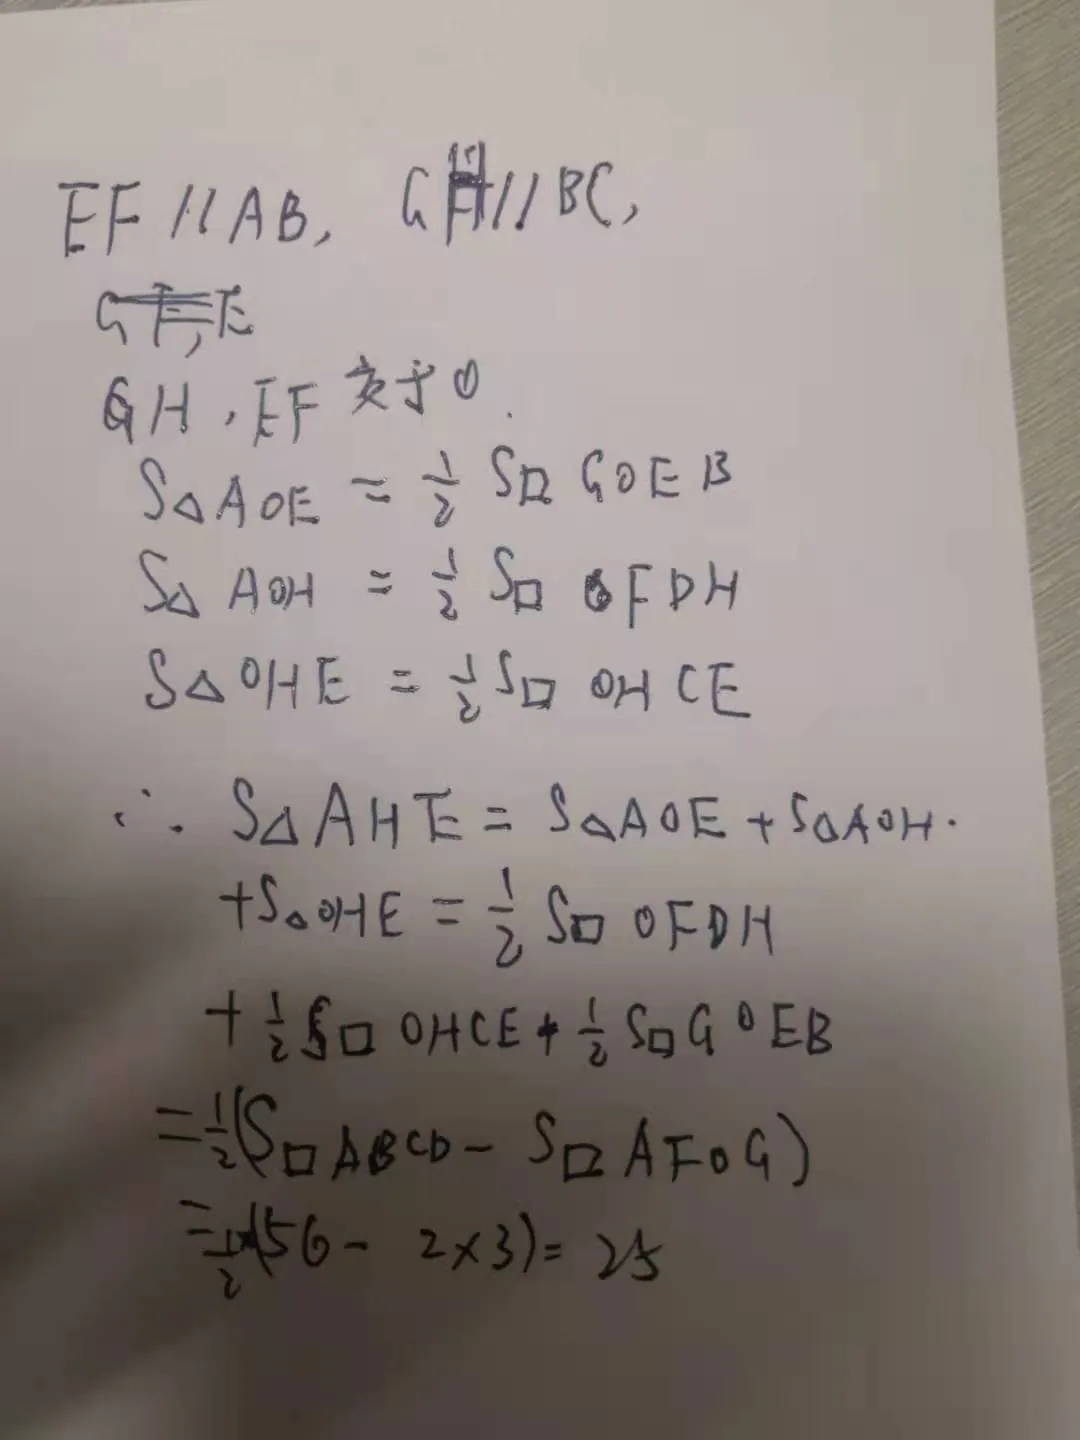 EF//AB, GH//BC,
GH, EF交于O.
S△AOE = 1/2 S□ GOEB
S△ AOH = 1/2 S□ OFDH
S△OHE = 1/2 S□ OHCE
∴ S△AHE = S△AOE + S△AOH.
+S△OHE = 1/2 S□ OFDH
+ 1/2 S□ OHCE + 1/2 S□GOEB
= 1/2(S□ABCD - S□AFOG)
= 1/2(56 - 2×3) = 25